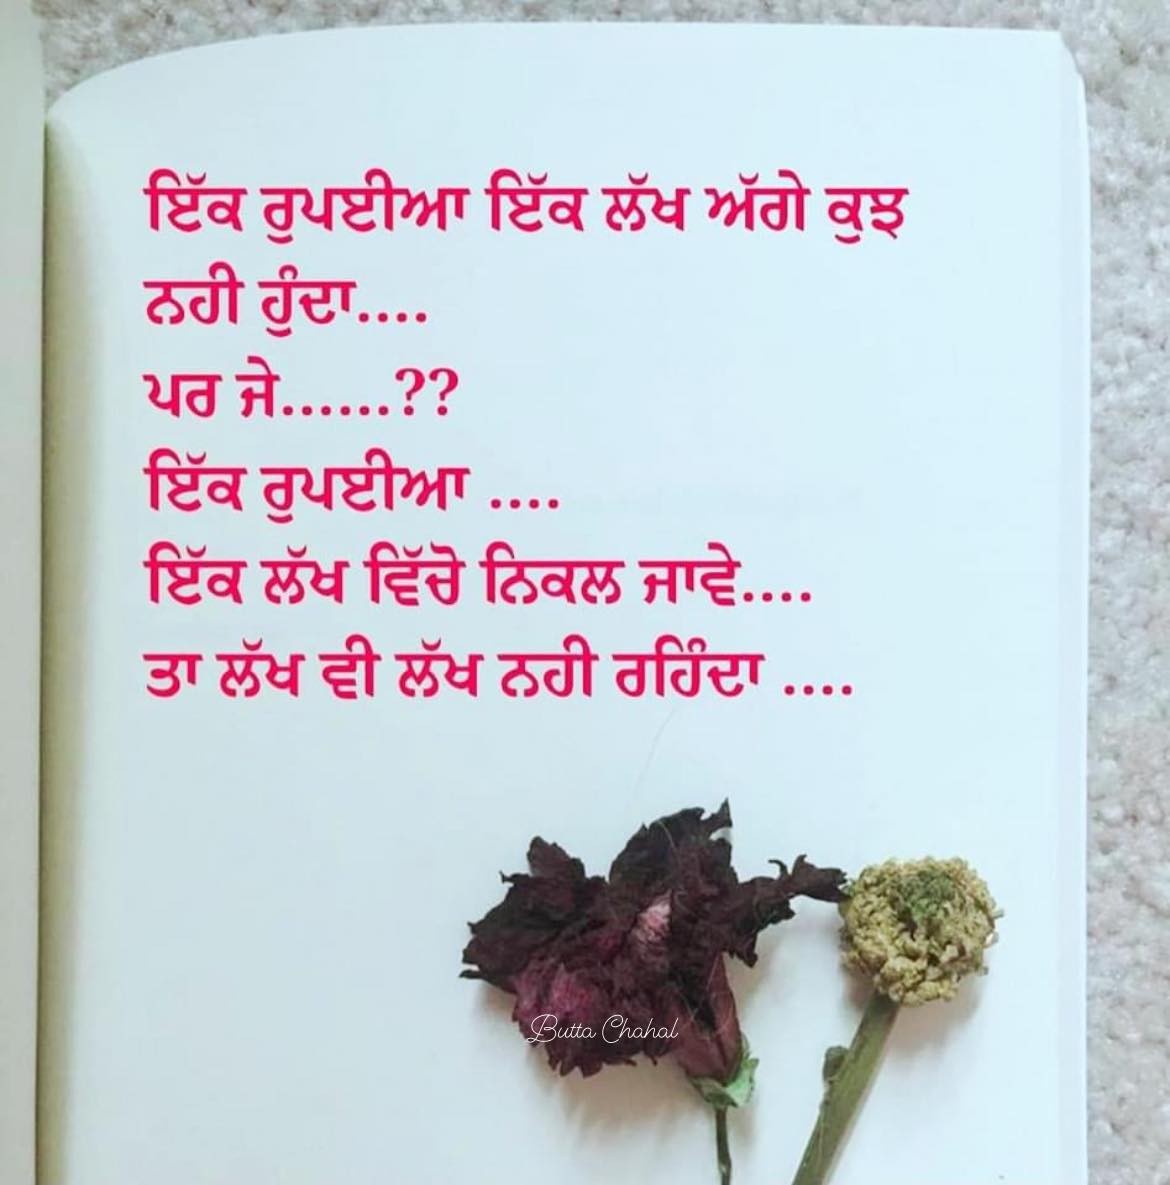 ਇੱਕ ਰੁਪਈਆ ਇੱਕ ਲੱਖ ਅੱਗੇ ਕੁਝ
ਨਹੀ ਹੁੰਦਾ....
ਪਰ ਜੇ......??
ਇੱਕ ਰੁਪਈਆ ....
ਇੱਕ ਲੱਖ ਵਿੱਚੋ ਨਿਕਲ ਜਾਵੇ....
ਤਾ ਲੱਖ ਵੀ ਲੱਖ ਨਹੀ ਰਹਿੰਦਾ ....
Butta Chahal